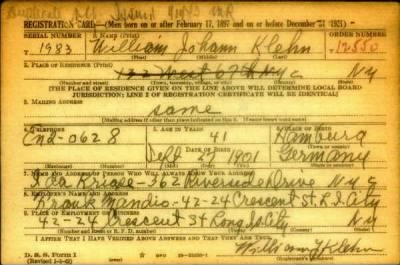 REGISTRATION CARD—(Men born on or after February 17, 1897 and on or before December 31, 1921)
SERIAL NUMBER 1. NAME (Print) ORDER NUMBER
1983 William Johann Klehn 12550
(First) (Middle) (Last)
2. PLACE OF RESIDENCE (Print)
West NYC NY
(Number and street) (Town, township, village, or city) (County) (State)
[THE PLACE OF RESIDENCE GIVEN ON THE LINE ABOVE WILL DETERMINE LOCAL BOARD
JURISDICTION; LINE 2 OF REGISTRATION CERTIFICATE WILL BE IDENTICAL]
3. MAILING ADDRESS
same
(Mailing address if other than place indicated on line 2. If same insert word same)
4. TELEPHONE 5. AGE IN YEARS 6. PLACE OF BIRTH
End-0628 41 Hamburg
DATE OF BIRTH (Town or county)
Sept 27 1901 Germany
(Exchange) (Number) (Mo.) (Day) (Yr.) (State or country)
7. NAME AND ADDRESS OF PERSON WHO WILL ALWAYS KNOW YOUR ADDRESS
362 Riverside Drive NYC
8. EMPLOYER'S NAME AND ADDRESS
Mandio-42-24 Crescent St. L.I. City
9. PLACE OF EMPLOYMENT OR BUSINESS
42-24 Crescent St Long Is. City NY
(Number and street or R. F. D. number) (Town) (County) (State)
I AFFIRM THAT I HAVE VERIFIED ABOVE ANSWERS AND THAT THEY ARE TRUE.
D. S. S. Form 1
William J Klehn